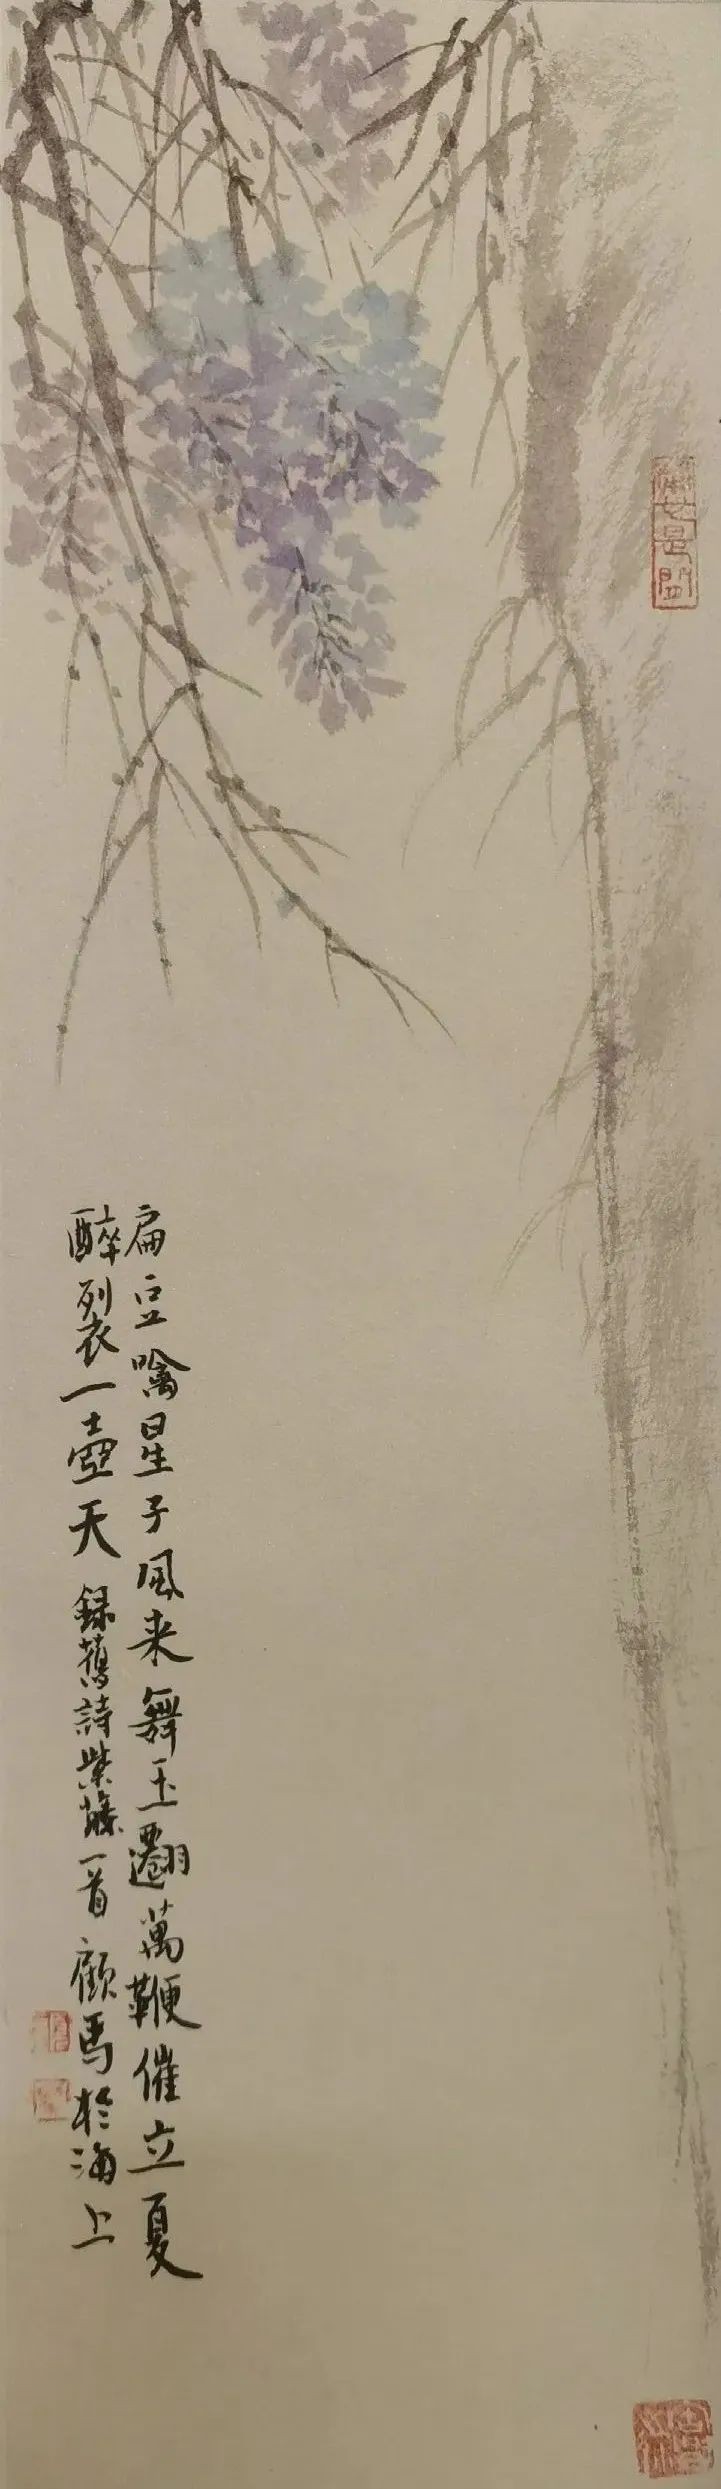 扁豆噙星子風来舞玉翾萬鞭催立夏
醉裂一壺天 録舊詩紫藤一首 顧馬於海上